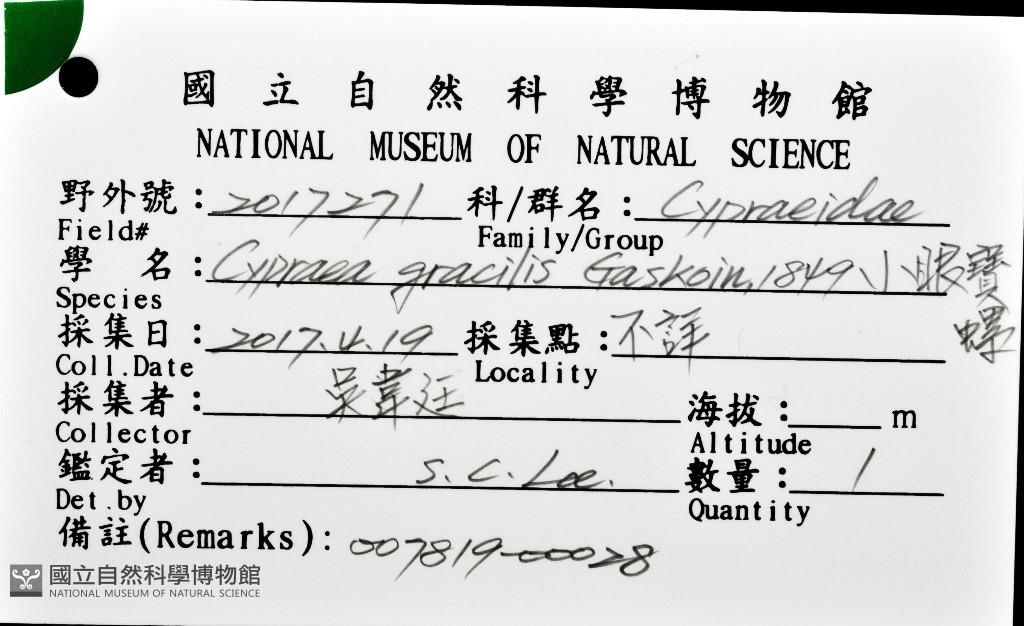 國立自然科學博物館
NATIONAL MUSEUM OF NATURAL SCIENCE
野外號：2017271 科/群名：Cypraeidae
Field# Family/Group
學名：Cypraea gracilis Gaskoin, 1849 小眼寶螺
Species
採集日：2017.4.19 採集點：不詳
Coll.Date Locality
採集者：吳韋廷 海拔：m
Collector Altitude
鑑定者：S. C. Lee. 數量：1
Det.by Quantity
備註(Remarks)：007819-00028
國立自然科學博物館
NATIONAL MUSEUM OF NATURAL SCIENCE